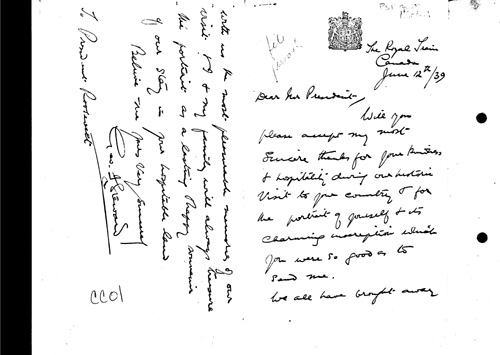 The Royal Train
Canada
June 12th/39
Dear Mr President,
Will you
please accept my most
sincere thanks for your kindness
& hospitality during our historic
visit to your country & for
the portrait of yourself & its
charming inscription which
you were so good as to
send me.
We all have brought away
with us the most pleasurable memories of our
visit & my family will always treasure
the portrait as a lasting happy souvenir
of our stay in your hospitable land
Believe me yours very sincerely
Geo. F Steward
To President Roosevelt
CC01